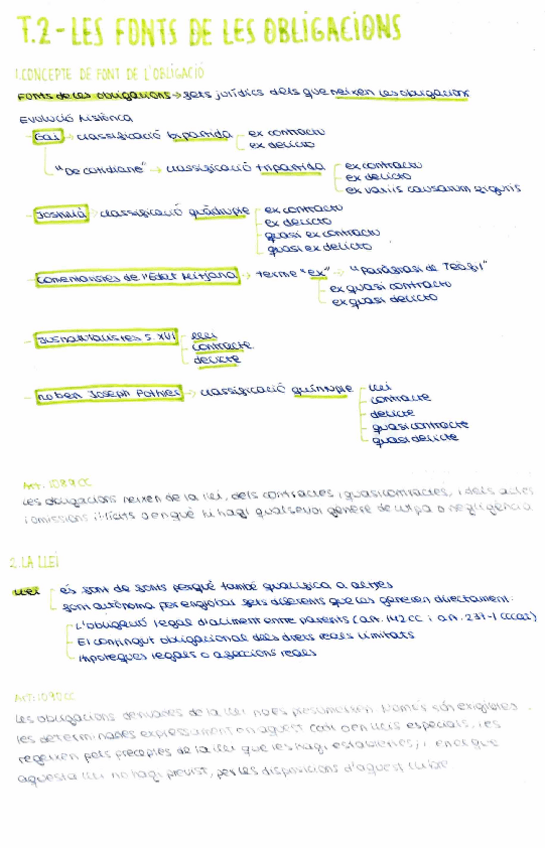 T.2 - LES FONTS DE LES OBLIGACIONS
1. CONCEPTE DE FONT DE L'OBLIGACIÓ
Fonts de les obligacions → fets jurídics dels que neixen les obligacions
Evolució històrica
- Gai → classificació bipartida - ex contractu
- ex delicto
"De cotidiane" → classificació tripartida - ex contractu
- ex delicto
- ex variis causarum figuris
- Justinià → classificació quàdruple - ex contractu
- ex delicto
- quasi ex contractu
- quasi ex delicto
- Comentaristes de l'Edat Mitjana → terme "ex" → "Paràgrasi de Teòfil"
- ex quasi contractu
- ex quasi delicto
- Iusnaturalistes S. XVI - llei
- contracte
- delicte
- Robert Joseph Pothier → classificació quíntuple - llei
- contracte
- delicte
- quasicontracte
- quasidelicte
Art. 1089 CC
Les obligacions neixen de la llei, dels contractes i quasicontractes, i dels actes
i omissions il·lícits o en què hi hagi qualsevol gènere de culpa o negligència
2. LA LLEI
Llei - és font de fonts perquè també qualifica a altres
- font autònoma per englobar fets diferents que les generen directament:
- L'obligació legal d'aliment entre parents (art. 142 CC i art. 237-1 CCCat)
- El contingut obligacional dels drets reals limitats
- Hipoteques legals o afeccions reals
Art. 1090 CC
Les obligacions derivades de la llei no es presumeixen. Només són exigibles
les determinades expressament en aquest Codi o en lleis especials, i es
regeixen pels preceptes de la llei que les hagi establertes; i en el que
aquesta llei no hagi previst, per les disposicions d'aquest llibre